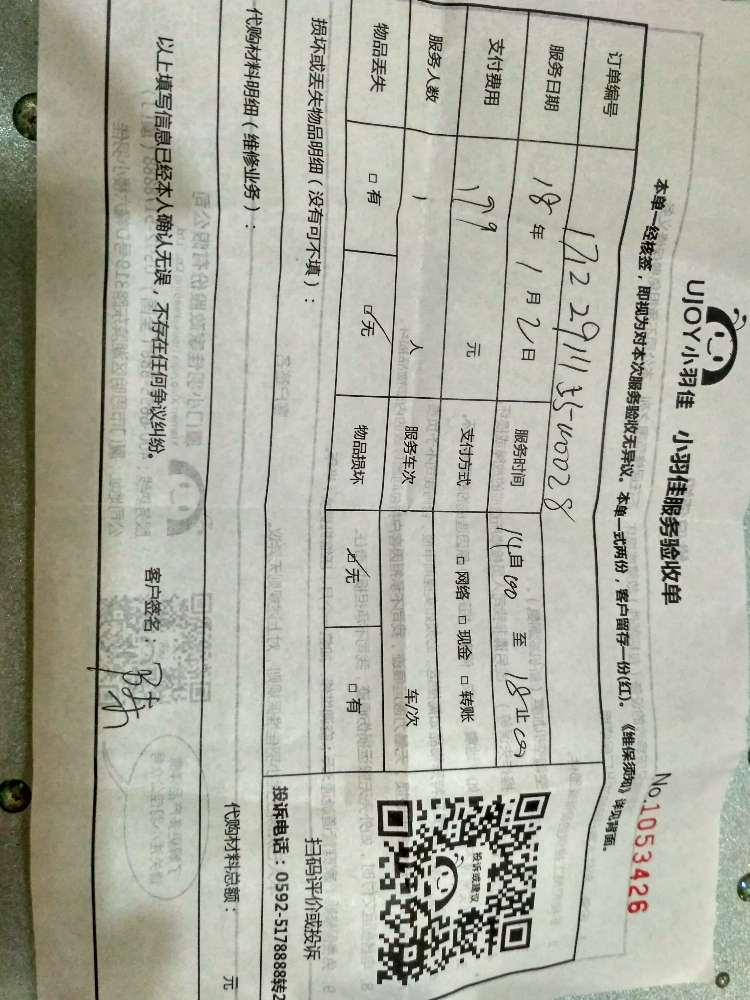 UJOY小羽佳 小羽佳服务验收单
No.1053426
本单一经核签，即视为对本次服务验收无异议。本单一式两份，客户留存一份(红)。《维保须知》详见背面。
订单编号
服务日期 18年1月2日 服务时间 自14:00至18:00止
支付费用 199元 支付方式 □网络 □现金 □转账
服务人数 1人 服务车次 车/次
物品丢失 □有 ☑无 物品损坏 ☑无 □有
投诉或建议
扫码评价或投诉
投诉电话：0592-5178888转2
损坏或丢失物品明细（没有可不填）：
代购材料明细（维修业务）： 代购材料总额： 元
以上填写信息已经本人确认无误，不存在任何争议纠纷。 客户签名：